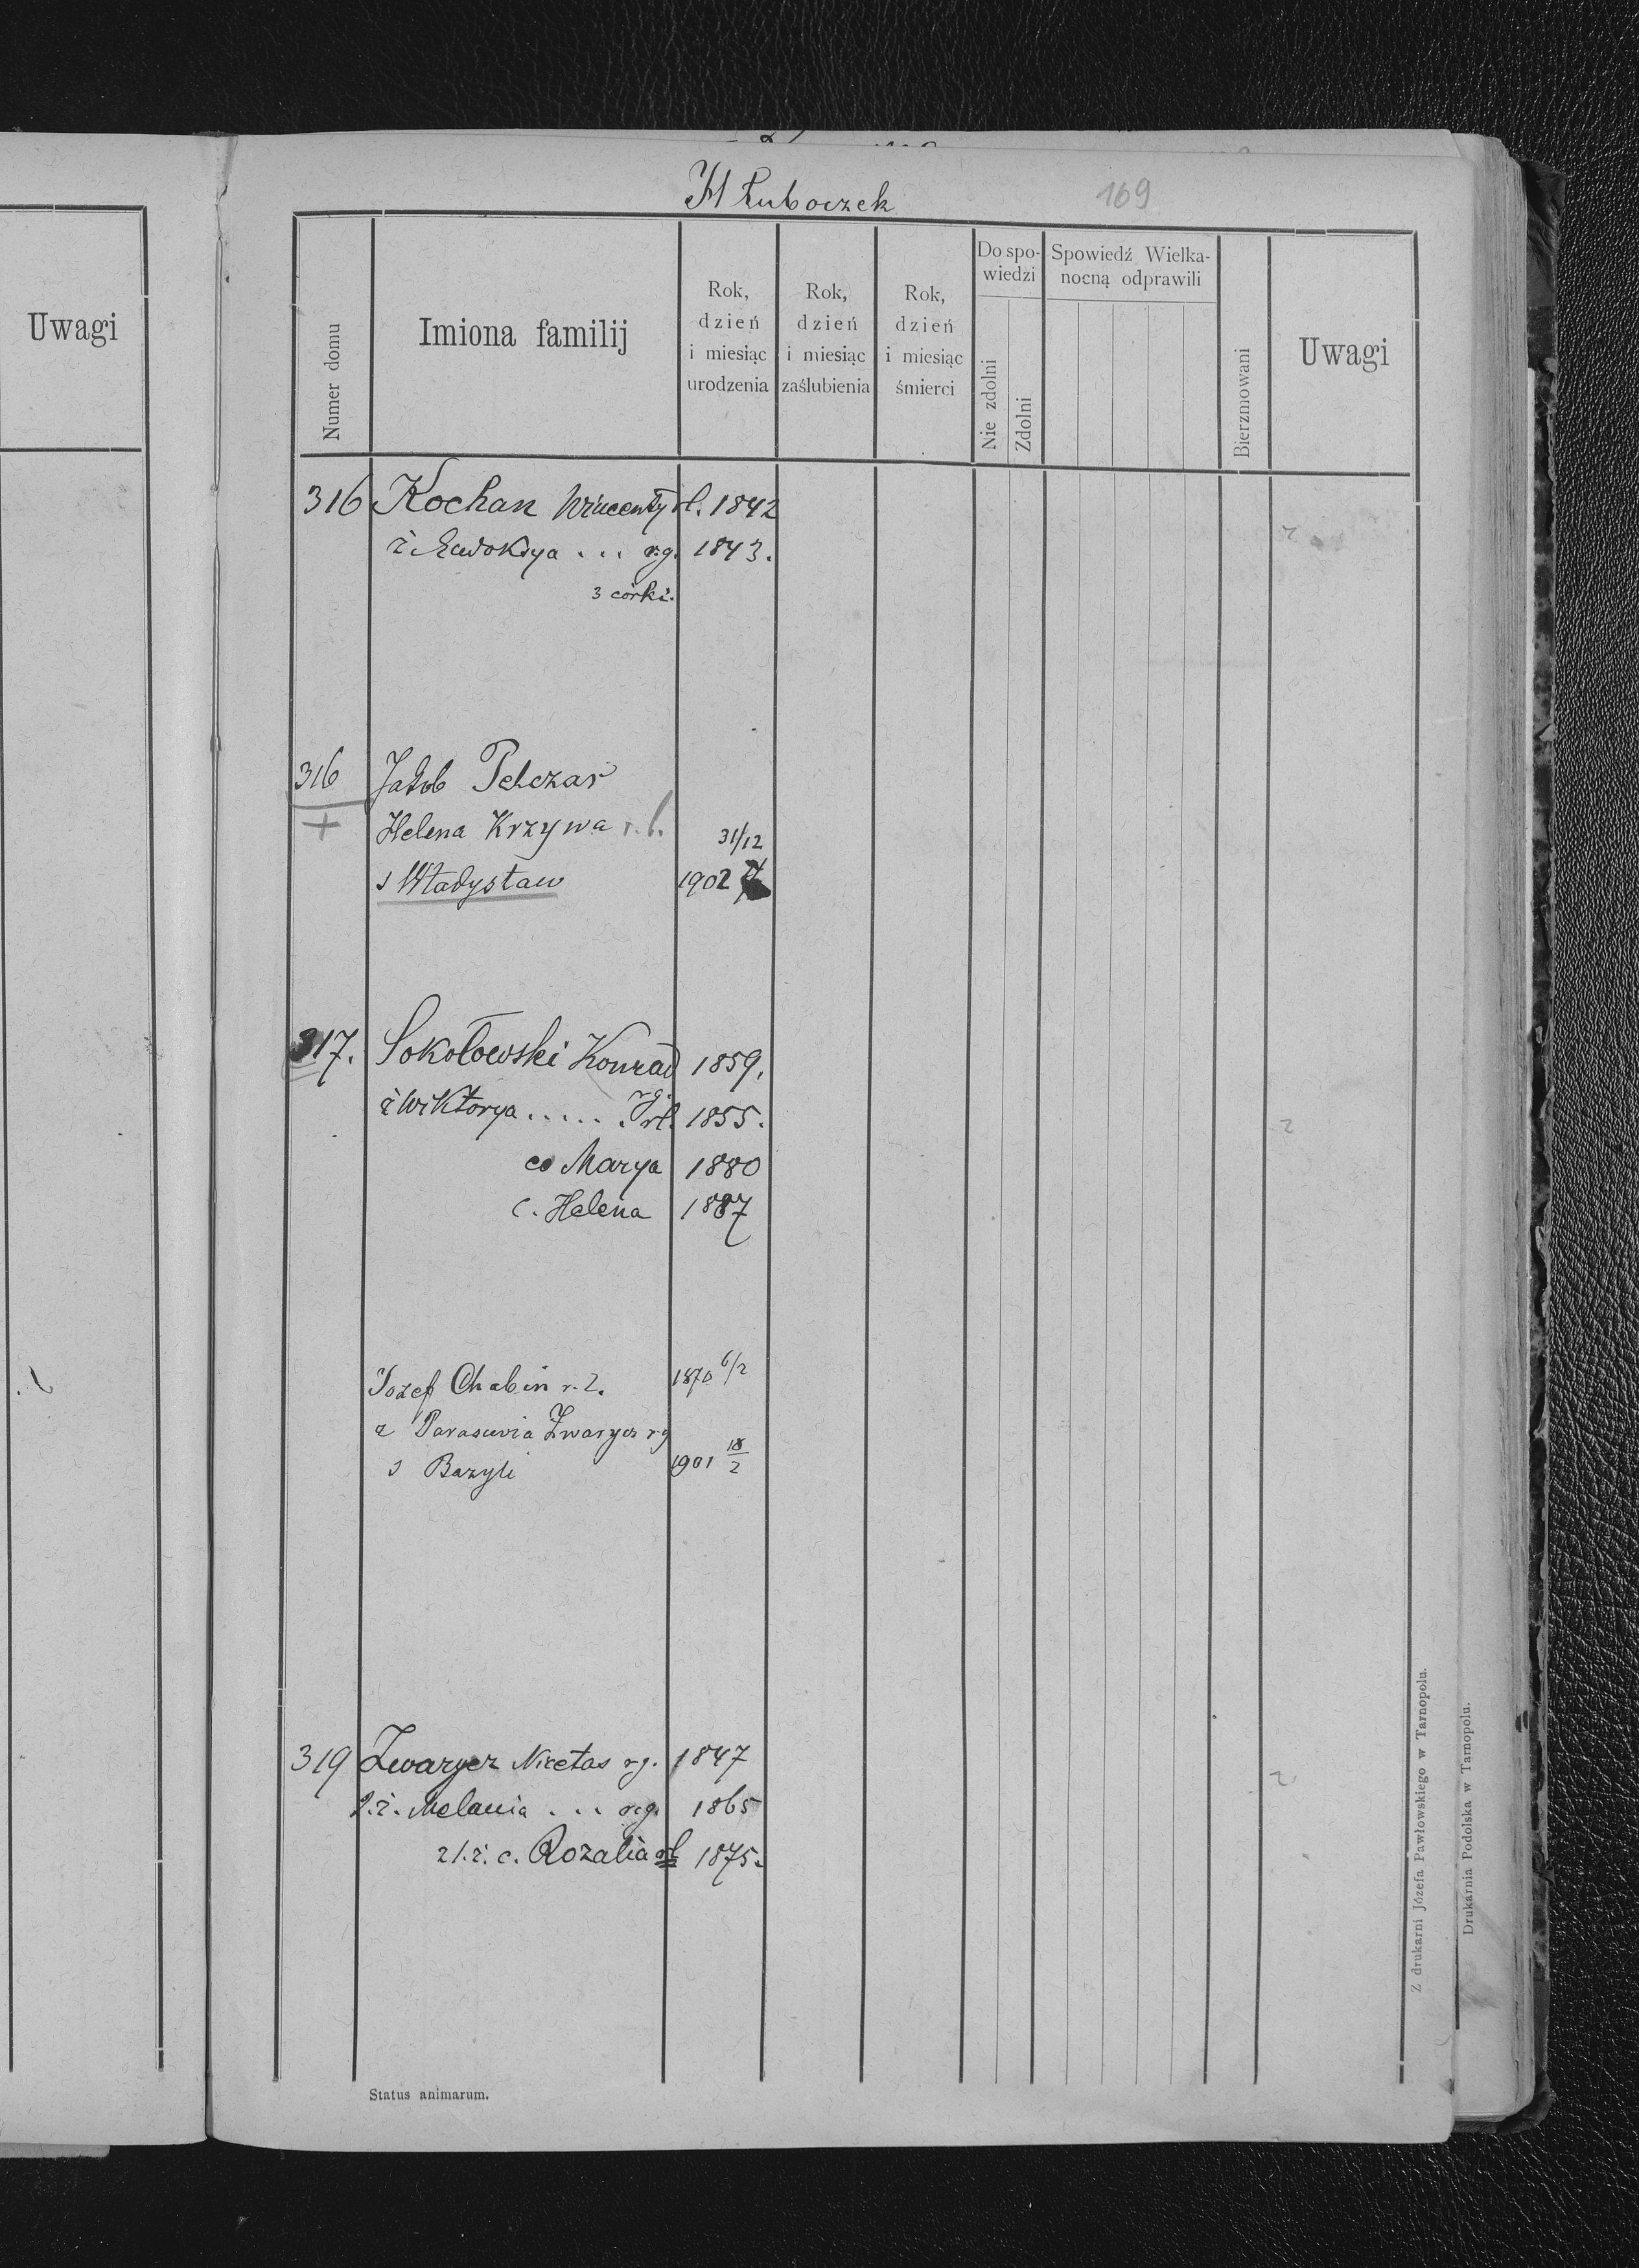 Hłuboczek
169
Uwagi
Numer domu
Imiona familij
Rok, dzień i miesiąc urodzenia
Rok, dzień i miesiąc zaślubienia
Rok, dzień i miesiąc śmierci
Do spowiedzi
Nie zdolni
Zdolni
Spowiedź Wielkanocną odprawili
Bierzmowani
Uwagi
316 Kochan Wincenty rł. 1842
ż. Ewdokya ... r.g. 1843.
3 córki.
2
316 Jakób Pelczar
+ Helena Krzywa r.ł. 31/12
s Władysław 1902
317. Sokołowski Konrad 1859.
r.g.
ż Wiktorya ..... rł. 1855.
2
co Marya 1880
c. Helena 1887
Jozef Chabin r. ł. 1870 6/2
ż Parascevia Zwarycz rg
s Bazyli 1901 18/2
319 Zwarycz Nicetas rg. 1847
2
2.ż. Melania ... rg. 1865
z 1. ż. c. Rozalia rł 1875.
Status animarum.
Z drukarni Józefa Pawłowskiego w Tarnopolu.
Drukarnia Podolska w Tarnopolu.